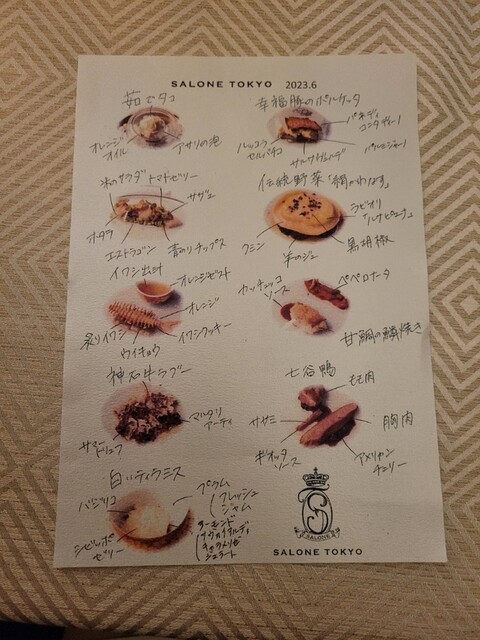 SALONE TOKYO 2023.6
茹でタコ
オレンジ
オイル
アサリの泡
幸福豚のポルケッタ
パネ・ディ
コンタディーノ
ルッコラ
セルバチコ
サルサヴェルデ
パルミジャーノ
米のサラダ
トマトゼリー
サザエ
ホタテ
エストラゴン
青のりチップス
伝統野菜「絹かわなす」
ラビオリ
クミン
羊のジュ
黒胡椒
イワシ出汁
オレンジゼスト
オレンジ
炙りイワシ
ウイキョウ
イワシクッキー
カッチュッコ
ソース
ペペロナータ
甘鯛の鱗焼き
神石牛ラグー
マルタリ
アーティ
サマー
トリュフ
七谷鴨
もも肉
ササミ
胸肉
ギオッタ
ソース
アメリカン
チェリー
白いティラミス
バジリコ
プラム
フレッシュ
ジャム
ジビッボ
ゼリー
アーモンド
キャラメリゼ
ジェラート
SALONE
SALONE TOKYO